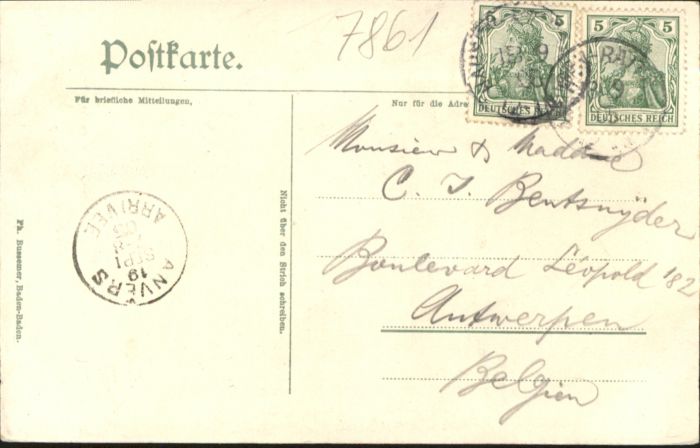 7861
Postkarte.
5
DEUTSCHES REICH
5
DEUTSCHES REICH
Für briefliche Mitteilungen,
Nur für die Adre
Monsieur & Madame
C. J. Bentsnÿder
Boulevard Léopold 182
Antwerpen
Belgien
Nicht über den Strich schreiben.
Ph. Bussemer, Baden-Baden.
ANVERS
19
SEPT
ARRIVEE